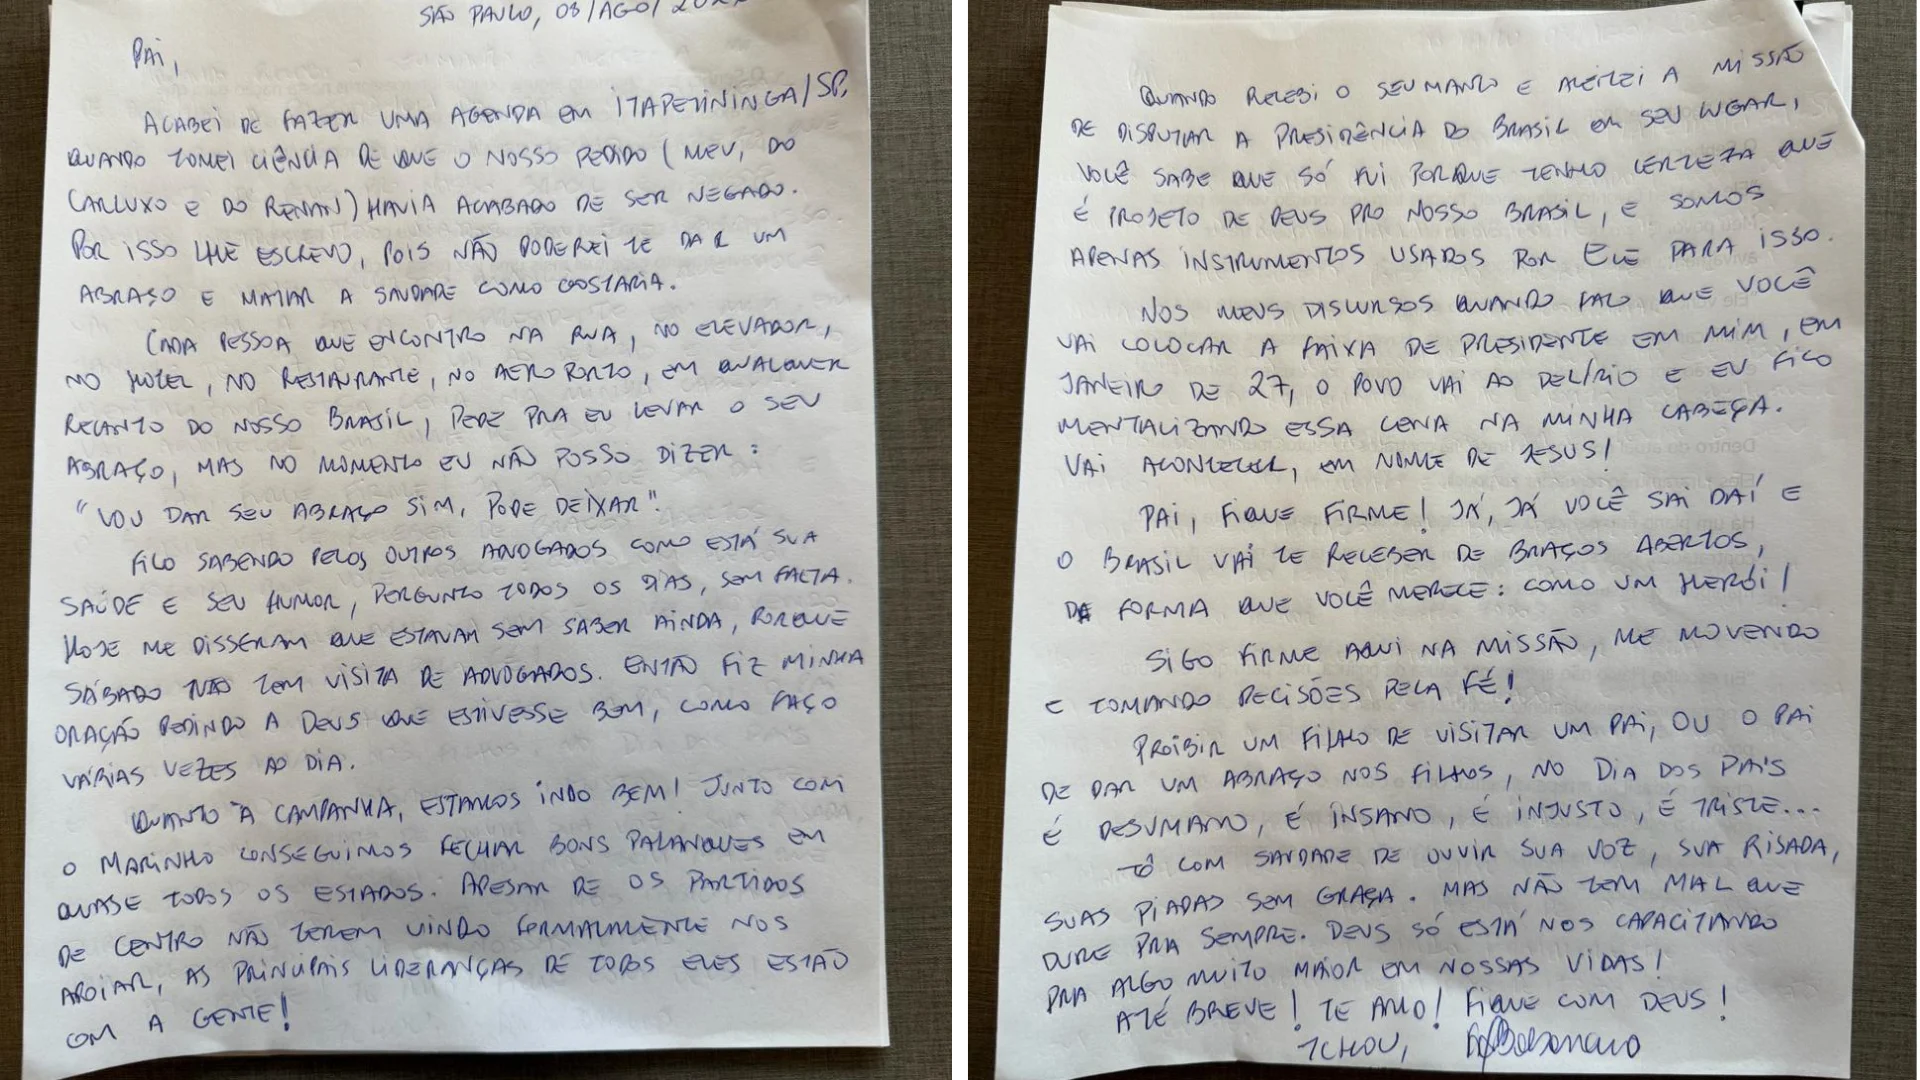 SÃO PAULO, 08/AGO/
PAI,
ACABEI DE FAZER UMA AGENDA EM ITAPETININGA/SP,
QUANDO TOMEI CIÊNCIA DE QUE O NOSSO PEDIDO (MEU, DO
CARLUXO E DO RENAN) HAVIA ACABADO DE SER NEGADO.
POR ISSO LHE ESCREVO, POIS NÃO PODEREI TE DAR UM
ABRAÇO E MATAR A SAUDADE COMO GOSTARIA.
CADA PESSOA QUE ENCONTRO NA RUA, NO ELEVADOR,
NO HOTEL, NO RESTAURANTE, NO AEROPORTO, EM QUALQUER
RECANTO DO NOSSO BRASIL, PEDE PRA EU LEVAR O SEU
ABRAÇO, MAS NO MOMENTO EU NÃO POSSO DIZER:
"VOU DAR SEU ABRAÇO SIM, PODE DEIXAR".
FICO SABENDO PELOS OUTROS ADVOGADOS COMO ESTÁ SUA
SAÚDE E SEU HUMOR, PERGUNTO TODOS OS DIAS, SEM FALTA.
HOJE ME DISSERAM QUE ESTAVAM SEM SABER AINDA, PORQUE
SÁBADO NÃO TEM VISITA DE ADVOGADOS. ENTÃO FIZ MINHA
ORAÇÃO PEDINDO A DEUS QUE ESTIVESSE BEM, COMO FAÇO
VÁRIAS VEZES AO DIA.
QUANTO À CAMPANHA, ESTAMOS INDO BEM! JUNTO COM
O MARINHO CONSEGUIMOS FECHAR BONS PALANQUES EM
QUASE TODOS OS ESTADOS. APESAR DE OS PARTIDOS
DE CENTRO NÃO TEREM VINDO FORMALMENTE NOS
APOIAR, AS PRINCIPAIS LIDERANÇAS DE TODOS ELES ESTÃO
COM A GENTE!
QUANDO RECEBI O SEU MANTO E ACEITEI A MISSÃO
DE DISPUTAR A PRESIDÊNCIA DO BRASIL EM SEU LUGAR,
VOCÊ SABE QUE SÓ FUI PORQUE TENHO CERTEZA QUE
É PROJETO DE DEUS PRO NOSSO BRASIL, E SOMOS
APENAS INSTRUMENTOS USADOS POR ELE PARA ISSO.
NOS MEUS DISCURSOS QUANDO FALO QUE VOCÊ
VAI COLOCAR A FAIXA DE PRESIDENTE EM MIM, EM
JANEIRO DE 27, O POVO VAI AO DELÍRIO E EU FICO
MENTALIZANDO ESSA CENA NA MINHA CABEÇA.
VAI ACONTECER, EM NOME DE JESUS!
PAI, FIQUE FIRME! JÁ, JÁ VOCÊ SAI DAÍ E
O BRASIL VAI TE RECEBER DE BRAÇOS ABERTOS,
DA FORMA QUE VOCÊ MERECE: COMO UM HERÓI!
SIGO FIRME AQUI NA MISSÃO, ME MOVENDO
E TOMANDO DECISÕES PELA FÉ!
PROIBIR UM FILHO DE VISITAR UM PAI, OU O PAI
DE DAR UM ABRAÇO NOS FILHOS, NO DIA DOS PAIS
É DESUMANO, É INSANO, É INJUSTO, É TRISTE...
TÔ COM SAUDADE DE OUVIR SUA VOZ, SUA RISADA,
SUAS PIADAS SEM GRAÇA. MAS NÃO TEM MAL QUE
DURE PRA SEMPRE. DEUS SÓ ESTÁ NOS CAPACITANDO
PRA ALGO MUITO MAIOR EM NOSSAS VIDAS!
ATÉ BREVE! TE AMO! FIQUE COM DEUS!
TCHOU, Bolsonaro